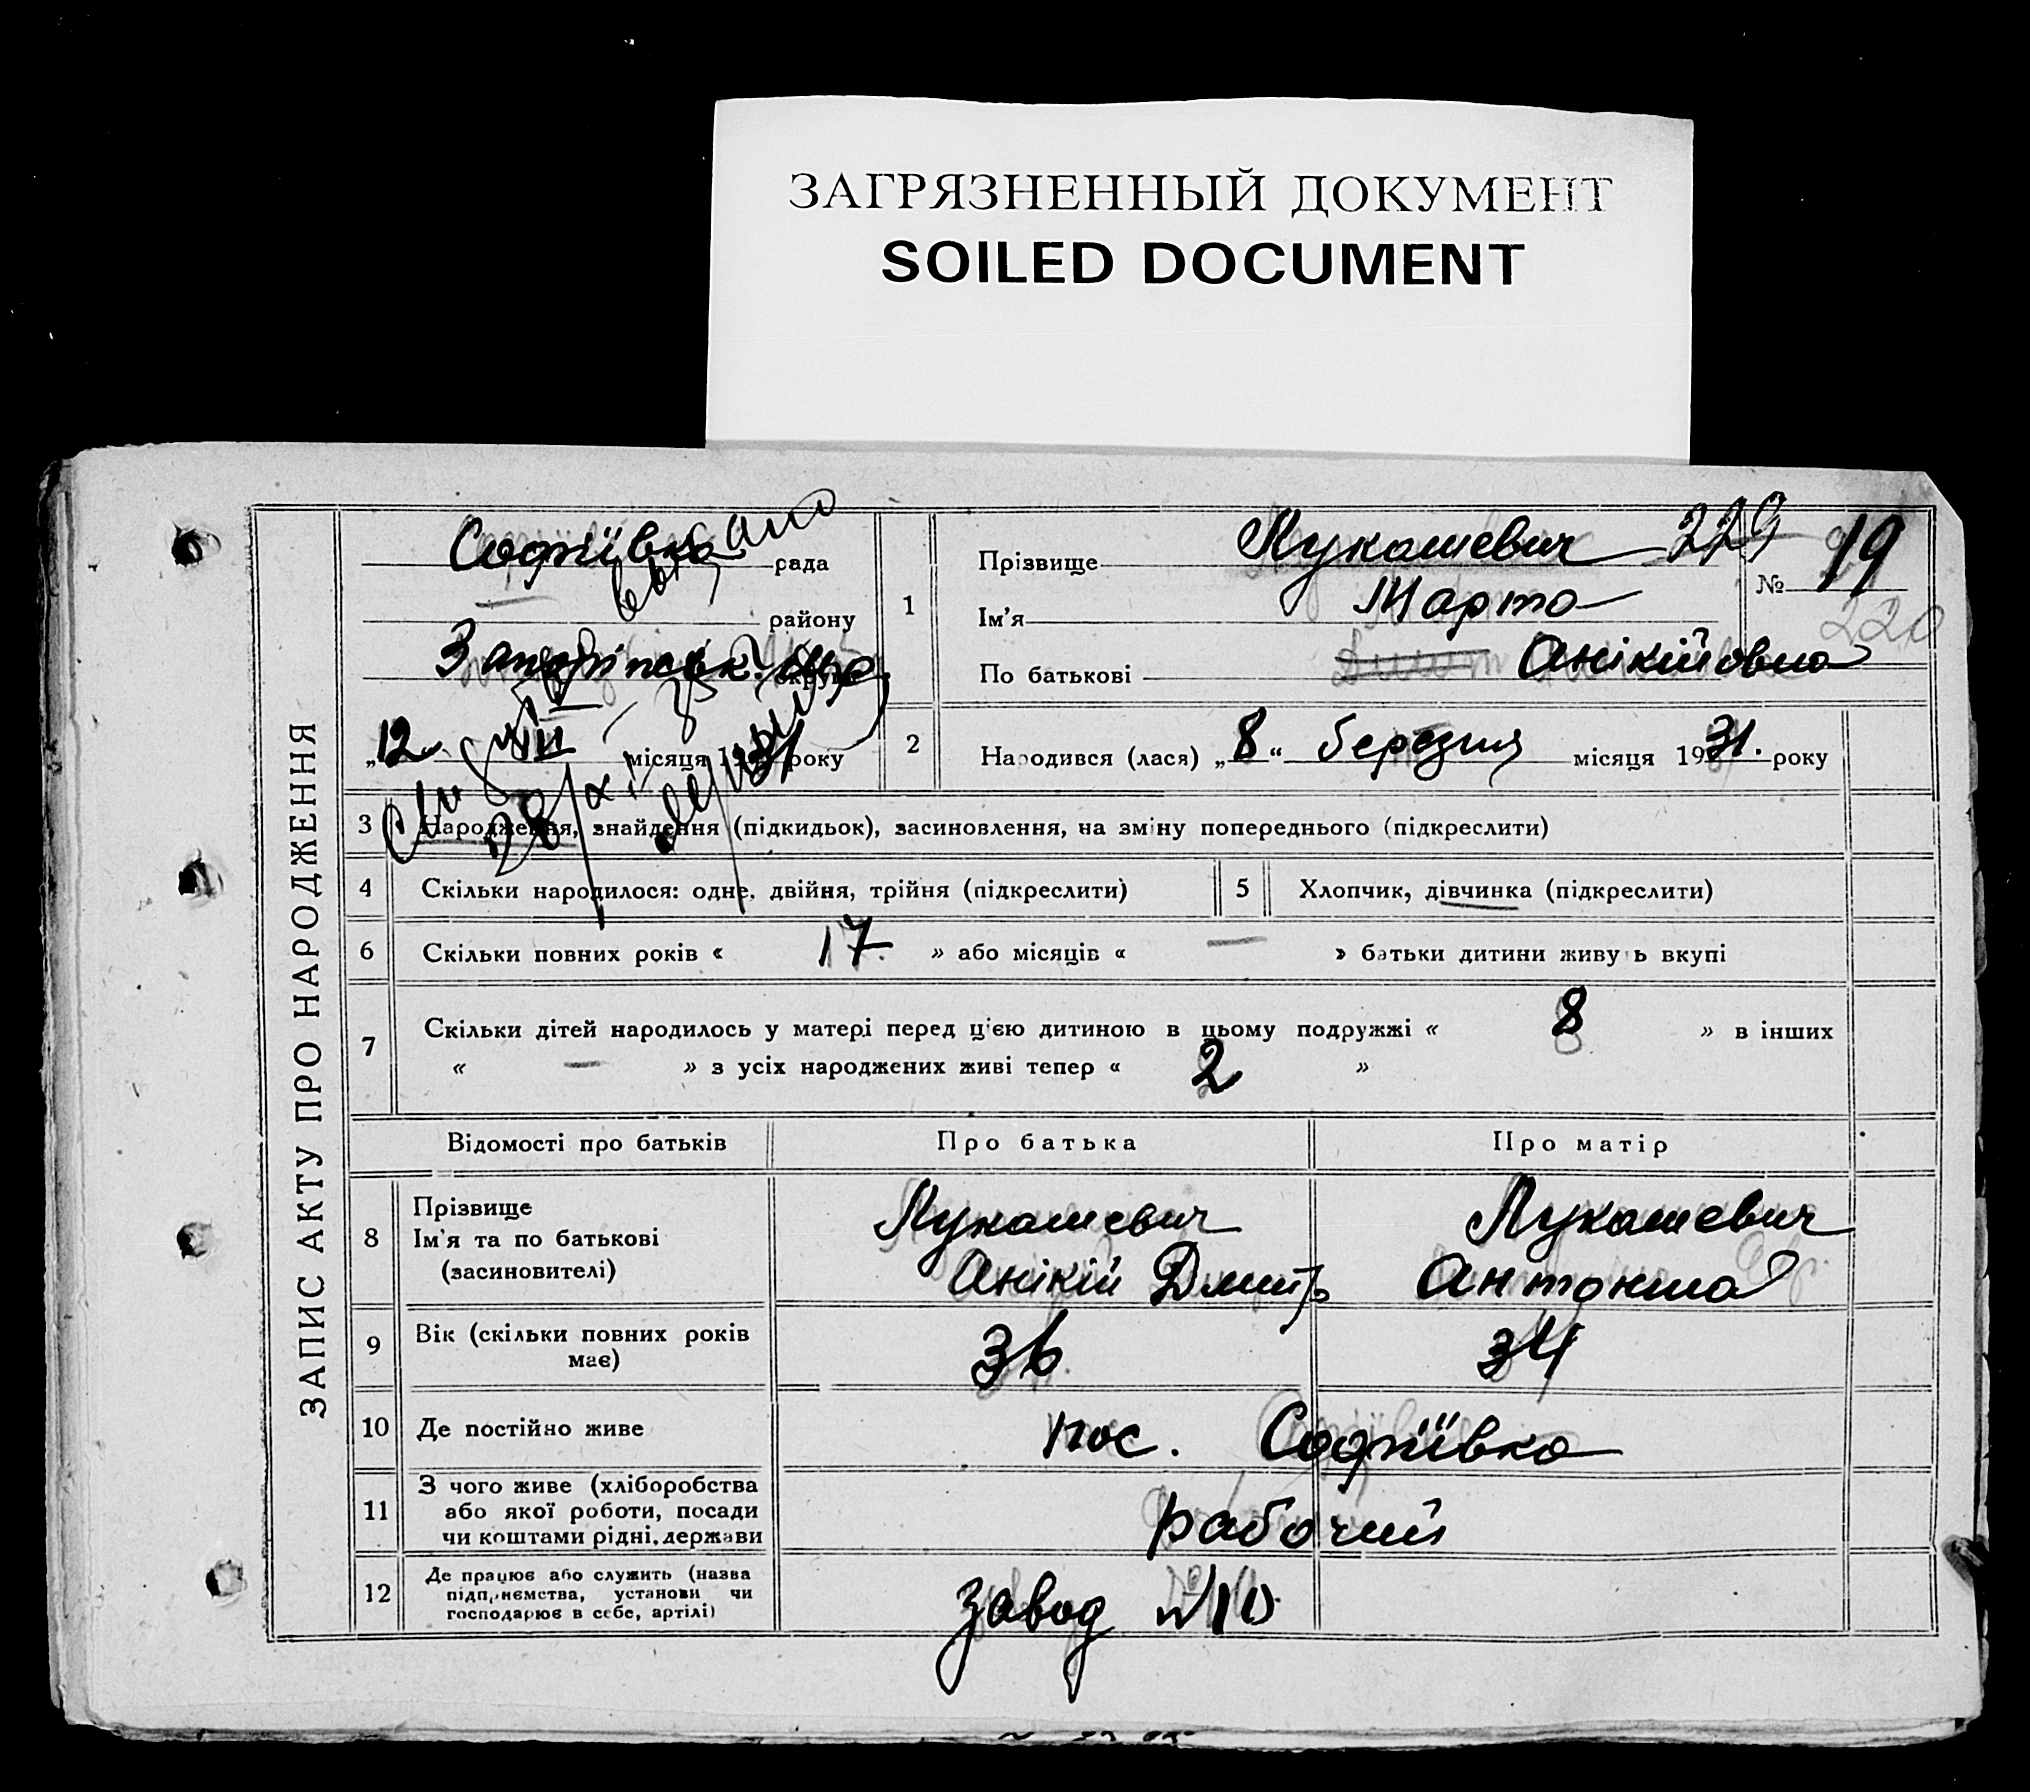 ЗАГРЯЗНЕННЫЙ ДОКУМЕНТ
SOILED DOCUMENT
ЗАПИС АКТУ ПРО НАРОДЖЕННЯ
Софіївка рада
району
округи
„12 VII місяця 1931 року
видано
28/XI
1 Прізвище Лукашевич 229
№ 19
220
Ім'я Марта
По батькові Анікійовна
2 Народився (лася) „8“ березня місяця 1931. року
3 Народження, знайдення (підкидьок), засиновлення, на зміну попереднього (підкреслити)
4 Скільки народилося: одне, двійня, трійня (підкреслити) 5 Хлопчик, дівчинка (підкреслити)
6 Скільки повних років « 17 » або місяців « — » батьки дитини живуть вкупі
7 Скільки дітей народилось у матері перед цією дитиною в цьому подружжі « 8 » в інших
« — » з усіх народжених живі тепер « 2 »
Відомості про батьків Про батька Про матір
8 Прізвище
Ім'я та по батькові
(засиновителі)
Лукашевич
Анікій Дмитр
Лукашевич
Антонина
9 Вік (скільки повних років
має)
36 34
10 Де постійно живе пос. Софіївка
11 З чого живе (хліборобства
або якої роботи, посади
чи коштами рідні, держави
рабочий
12 Де працює або служить (назва
підприємства, установи чи
господарює в себе, артілі)
завод №10